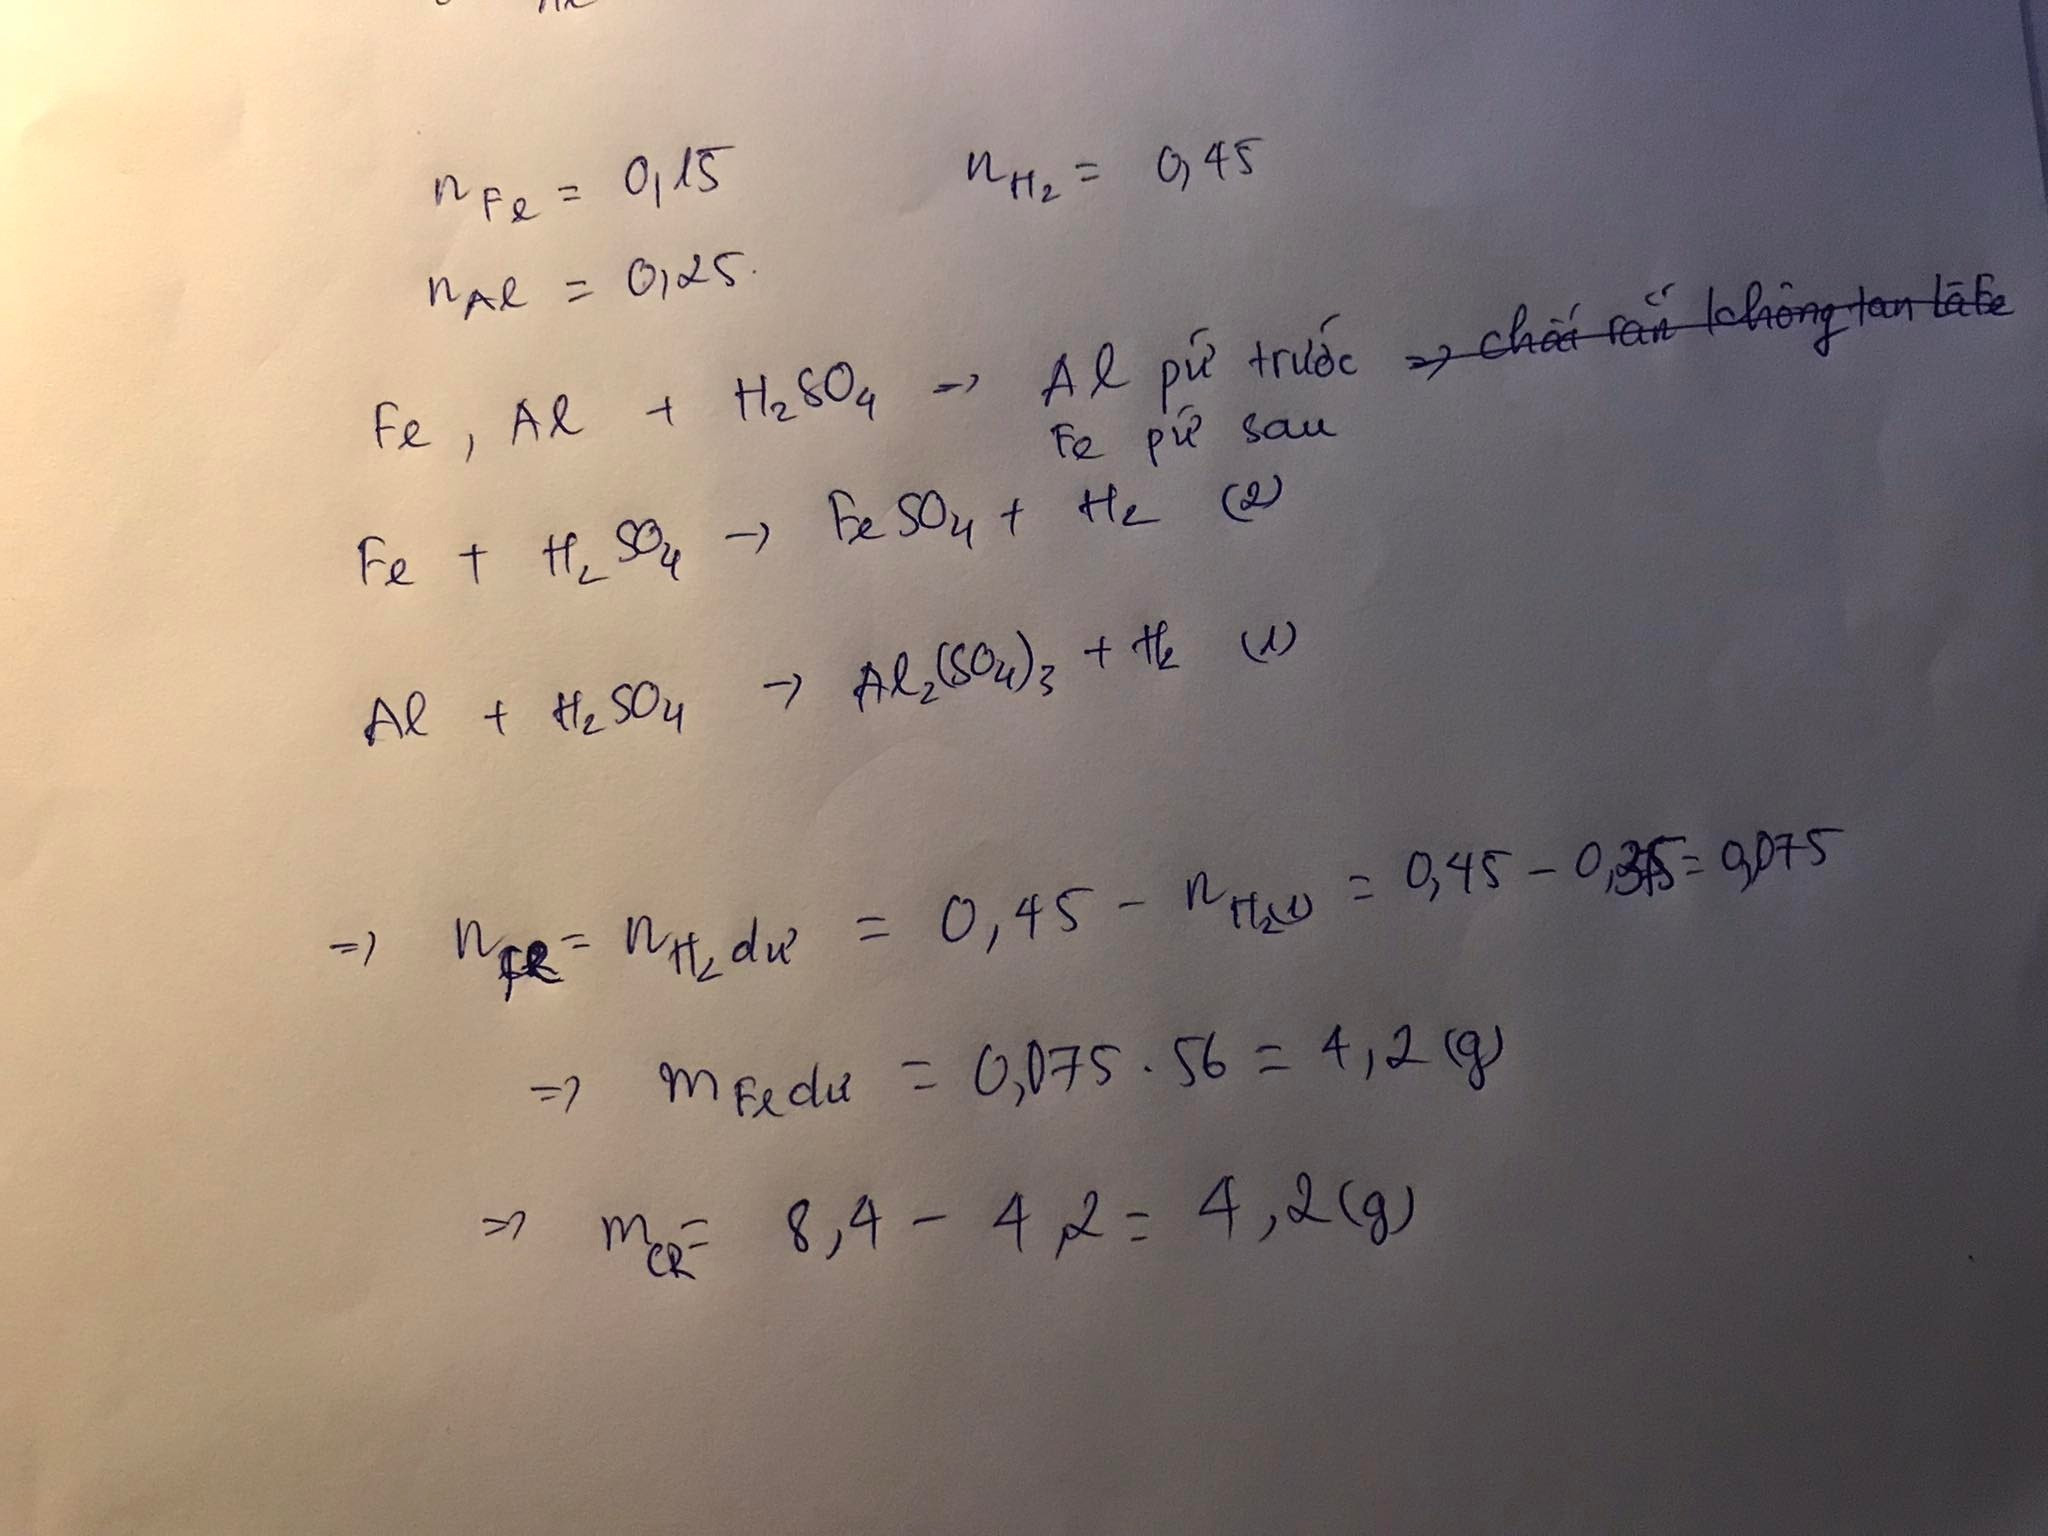 n Fe = 0,15 n H2 = 0,45
n Al = 0,25.
Fe, Al + H2SO4 => Al pứ trước => chất rắn không tan là Fe
Fe pứ sau
Fe + H2SO4 -> FeSO4 + H2 (2)
Al + H2SO4 -> Al2(SO4)3 + H2 (1)
=> n Fe = n H2 dư = 0,45 - n H2(1) = 0,45 - 0,375 = 0,075
=> m Fe dư = 0,075 . 56 = 4,2 (g)
=> m CR = 8,4 - 4,2 = 4,2 (g)